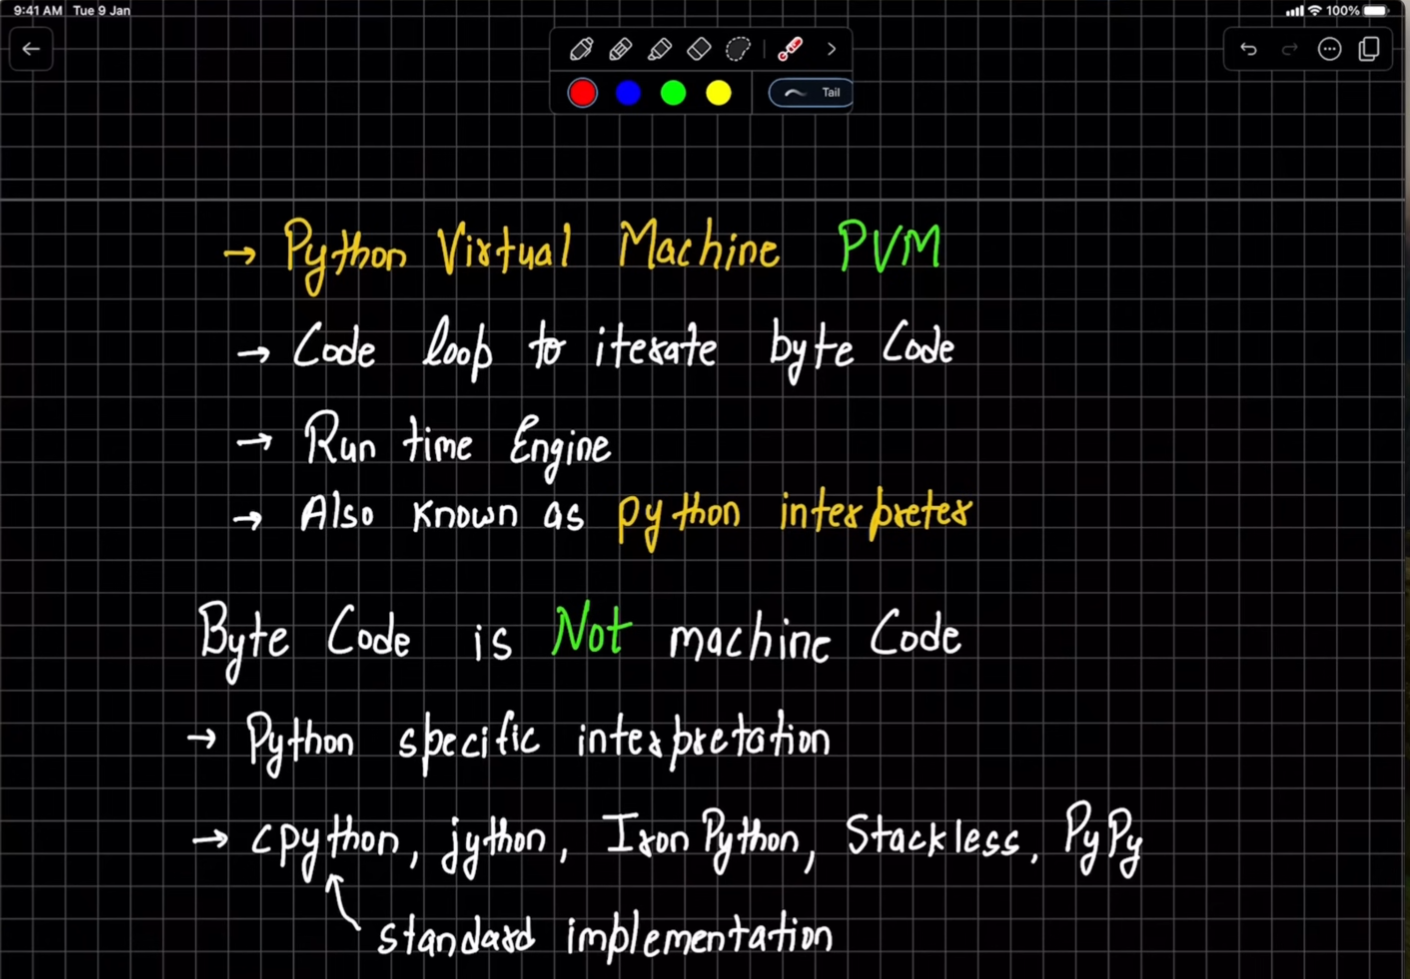 9:41 AM Tue 9 Jan 100%
Tail
→ Python Virtual Machine PVM
→ Code loop to iterate byte Code
→ Run time Engine
→ Also known as python interpreter
Byte Code is Not machine Code
→ Python specific interpretation
→ cpython, jython, Iron Python, Stackless, PyPy
standard implementation